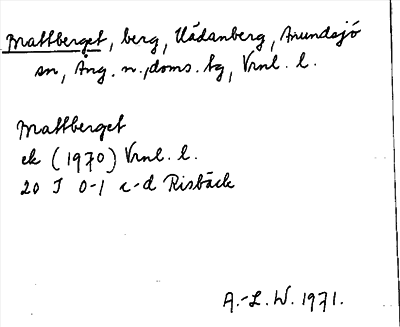 Mattberget, berg, Uådanberg, Anundsjö
sn, Ång. n., doms. bg, Vrnl. l.
Mattberget
ek (1970) Vrnl. l.
20 J 0-1 c-d Risbäck
A.-L. W. 1971.